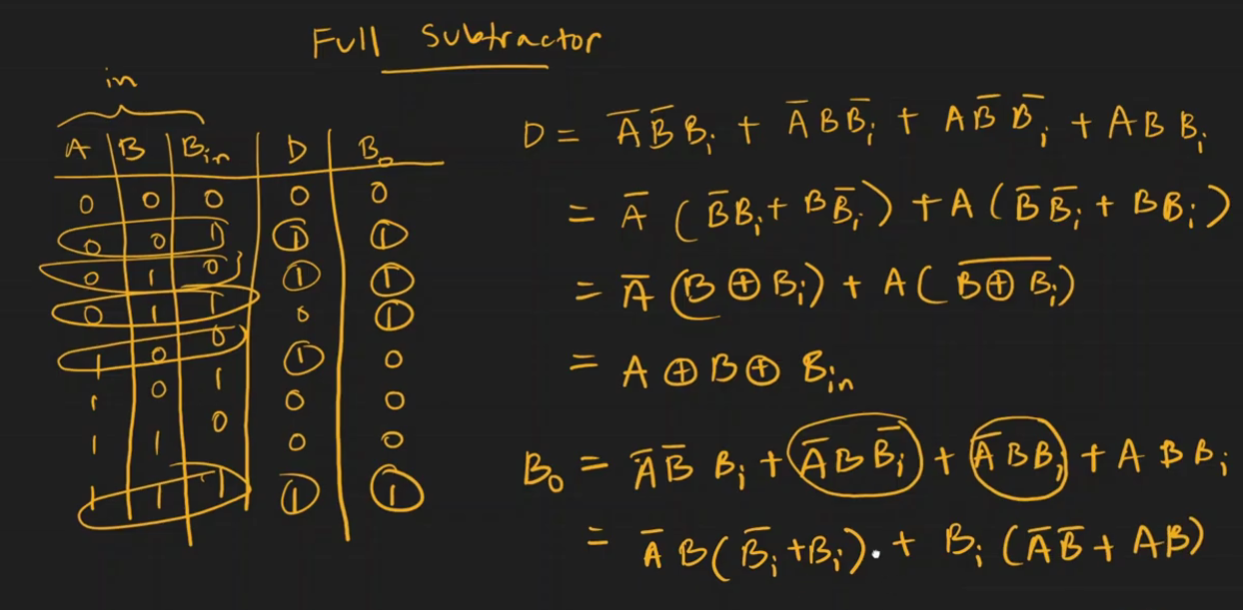 Full Subtractor
in
A | B | Bin | D | B₀
0 0 0 0 0
0 0 1 1 1
0 1 0 1 1
0 1 1 0 1
1 0 0 1 0
1 0 1 0 0
1 1 0 0 0
1 1 1 1 1
D = A̅ B̅ Bᵢ + A̅ B B̅ᵢ + A B̅ B̅ᵢ + A B Bᵢ
= A̅ ( B̅ Bᵢ + B B̅ᵢ ) + A ( B̅ B̅ᵢ + B Bᵢ )
= A̅ ( B ⊕ Bᵢ ) + A ( \overline{B ⊕ Bᵢ} )
= A ⊕ B ⊕ Bin
B₀ = A̅ B̅ Bᵢ + A̅ B B̅ᵢ + A̅ B Bᵢ + A B Bᵢ
= A̅ B ( B̅ᵢ + Bᵢ ) . + Bᵢ ( A̅ B̅ + A B )